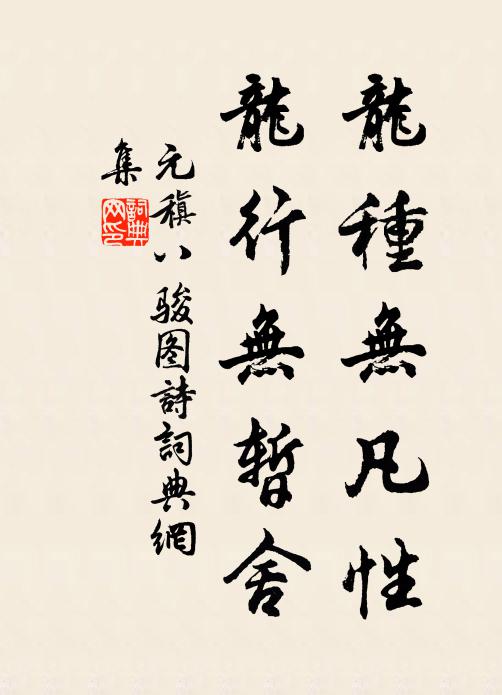 龍種無凡性
龍行無暫舍
元稹八駿图詩詞典網
集
詞典
网印